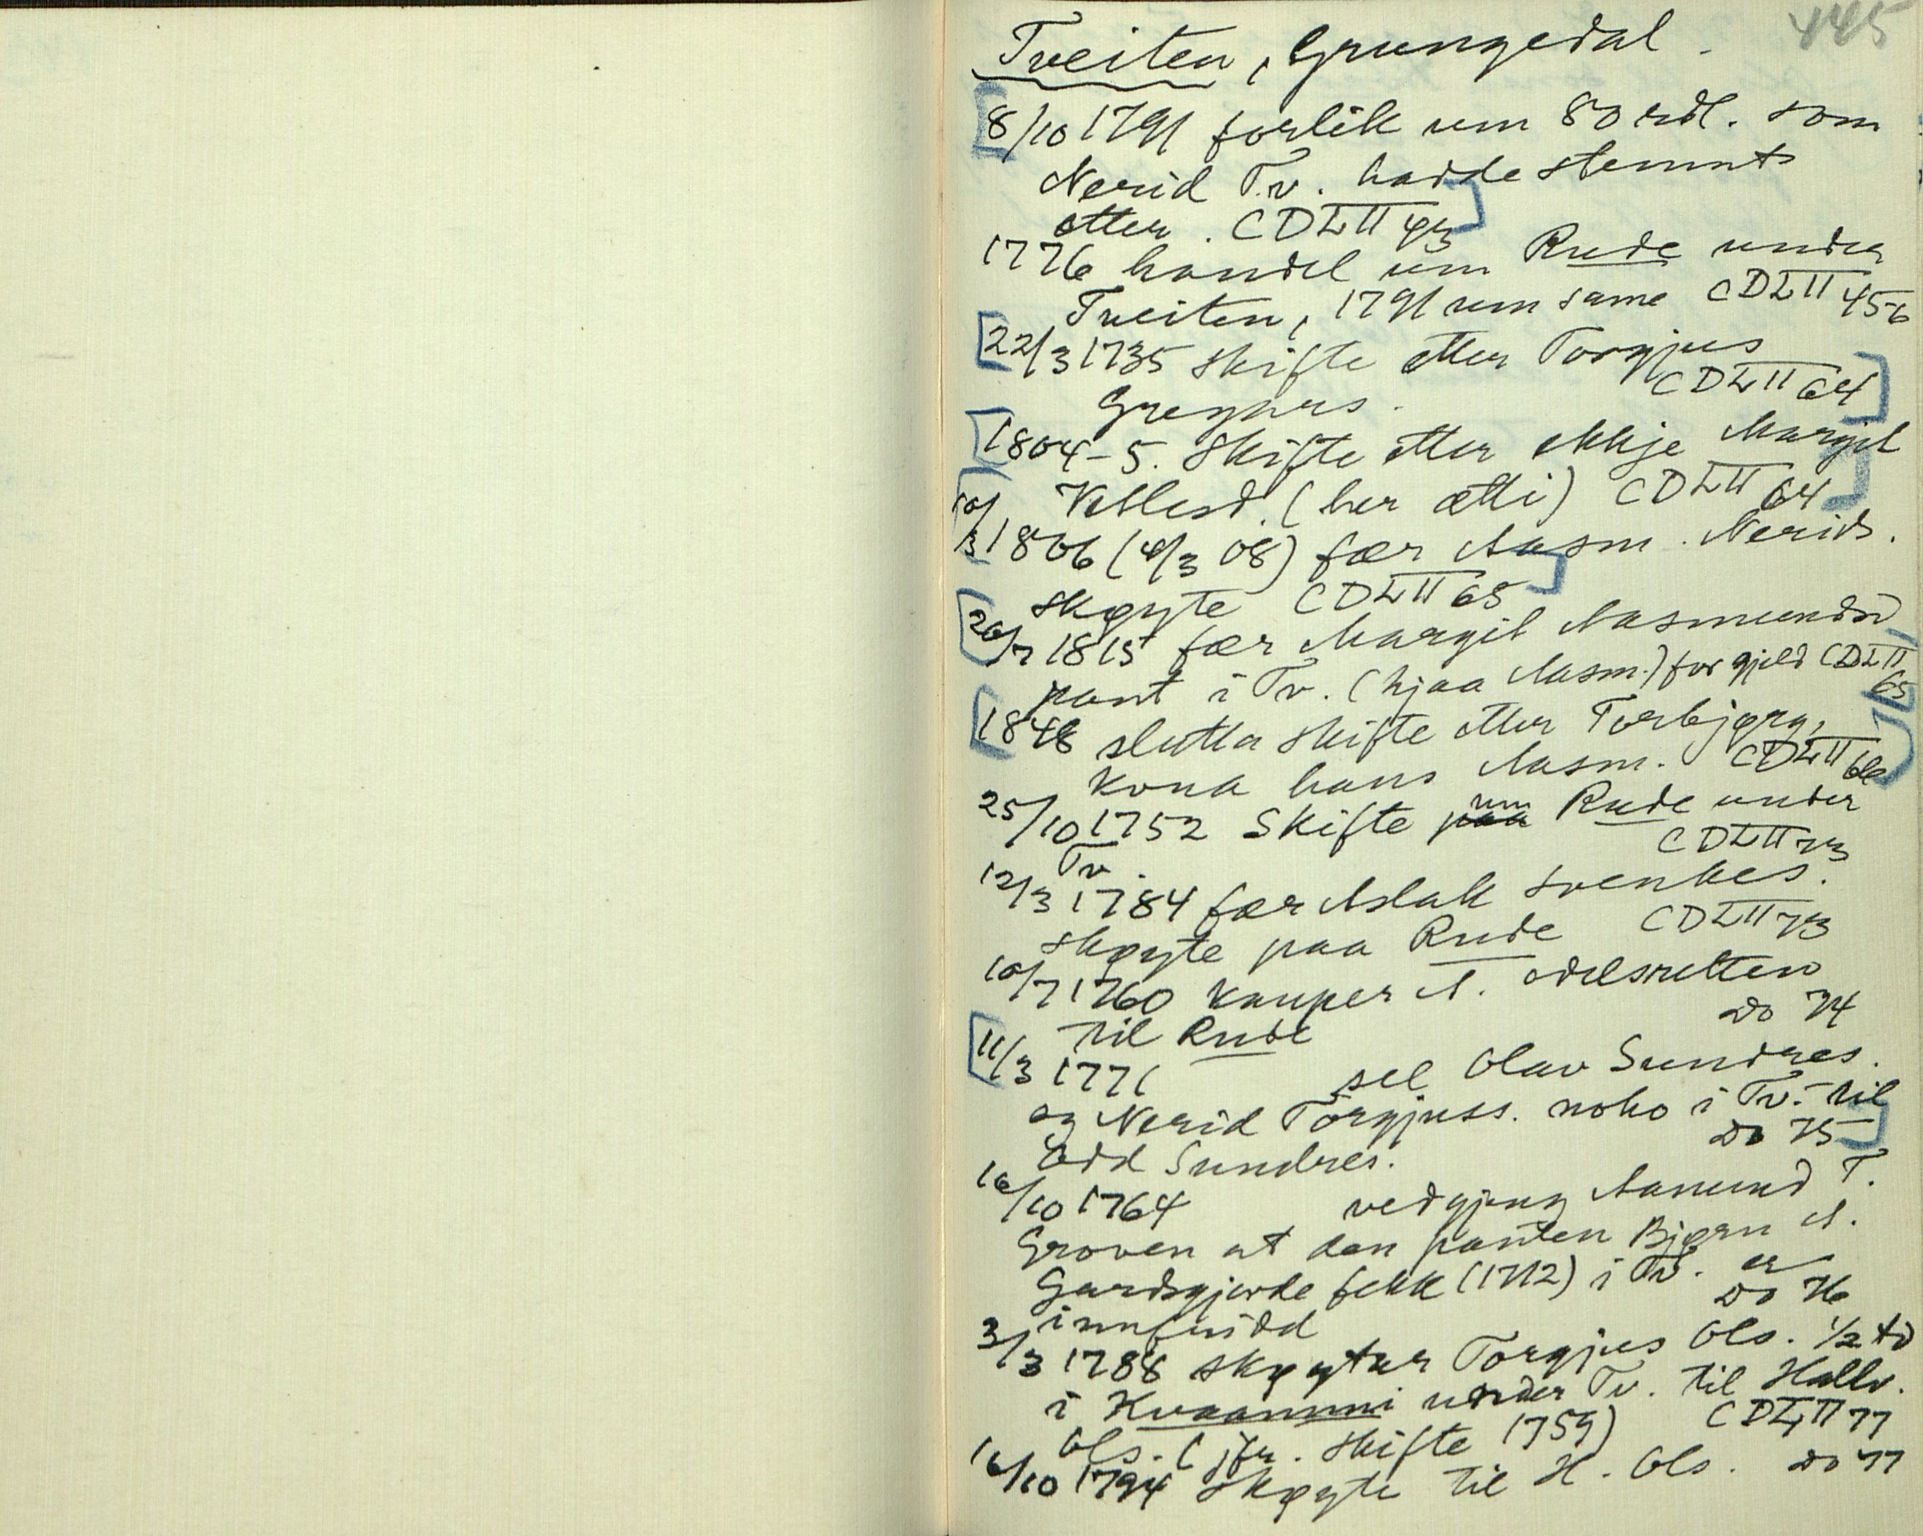 445
Tveiten, Grungedal.
[8/10 1791 forlik um 80 rdl. som
Nerid Tv. hadde stemnt
etter. CDLII 43]
1776 handel um Rude under
Tveiten, 1791 um same CDLII 45-6
[22/3 1735 skifte etter Torgjus
Gregars. CDLII 64]
[1804-5. Skifte etter ekkje Margit
Vetlesd. (her ætti) CDLII 64]
[10/3 1806 (4/3 08) fær Aasm. Nerids.
skøyte CDLII 65]
[20/7 1815 fær Margit Aasmundsd
pant i Tv. (hjaa Aasm.) for gjeld CDLII 65]
[1848 slutta skifte etter Torbjørg,
kona hans Aasm. CDLII 66]
25/10 1752 Skifte um Rude under
Tv. CDLII 73
12/3 1784 fær Aslak Svenkes.
skøyte paa Rude CDLII 73
10/7 1760 kauper A. odelsretten
til Rude Do 74
[11/3 1771 sel Olav Sundres.
og Nerid Torgjuss. noko i Tv. til
Odd Sundres. Do 75]
16/10 1764 vedgjeng Aanund T.
Groven at den panten Bjørn A.
Gardsgjerde fekk (1712) i Tv. er
innfridd Do 76
3/3 1788 skøytar Torgjus Ols. 1/2 td
i Kvaammi under Tv. til Hallv.
Ols. (jfr. skifte 1759) CDLII 77
16/10 1794 skøyte til H. Ols. Do 77